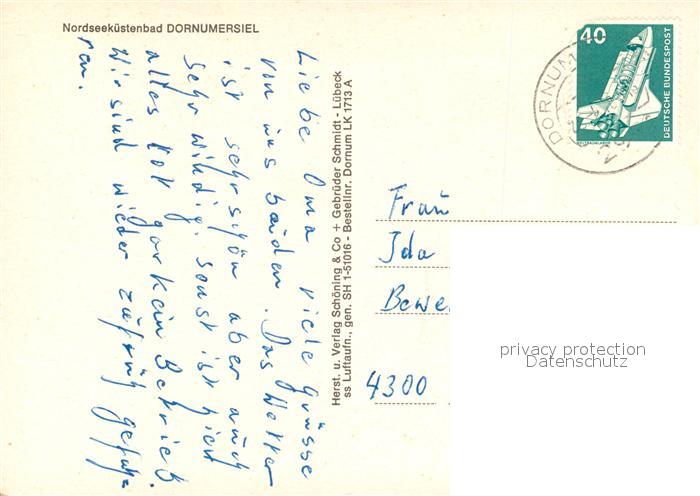 Nordseeküstenbad DORNUMERSIEL
Liebe Oma viele Grüsse
von uns beiden. Das Wetter
ist sehr schön aber auch
sehr windig. sonst ist hier
alles tot gar kein Betrieb.
Wir sind wieder zu früh gefah
ren.
Herst. u. Verlag Schöning & Co + Gebrüder Schmidt - Lübeck
ss Luftaufn., gen. SH 1-51016 - Bestellnr. Dornum LK 1713 A
40
DEUTSCHE BUNDESPOST
WELTRAUMLABOR
DORNUM
Frau
Ida
Bewe
4300
privacy protection
Datenschutz